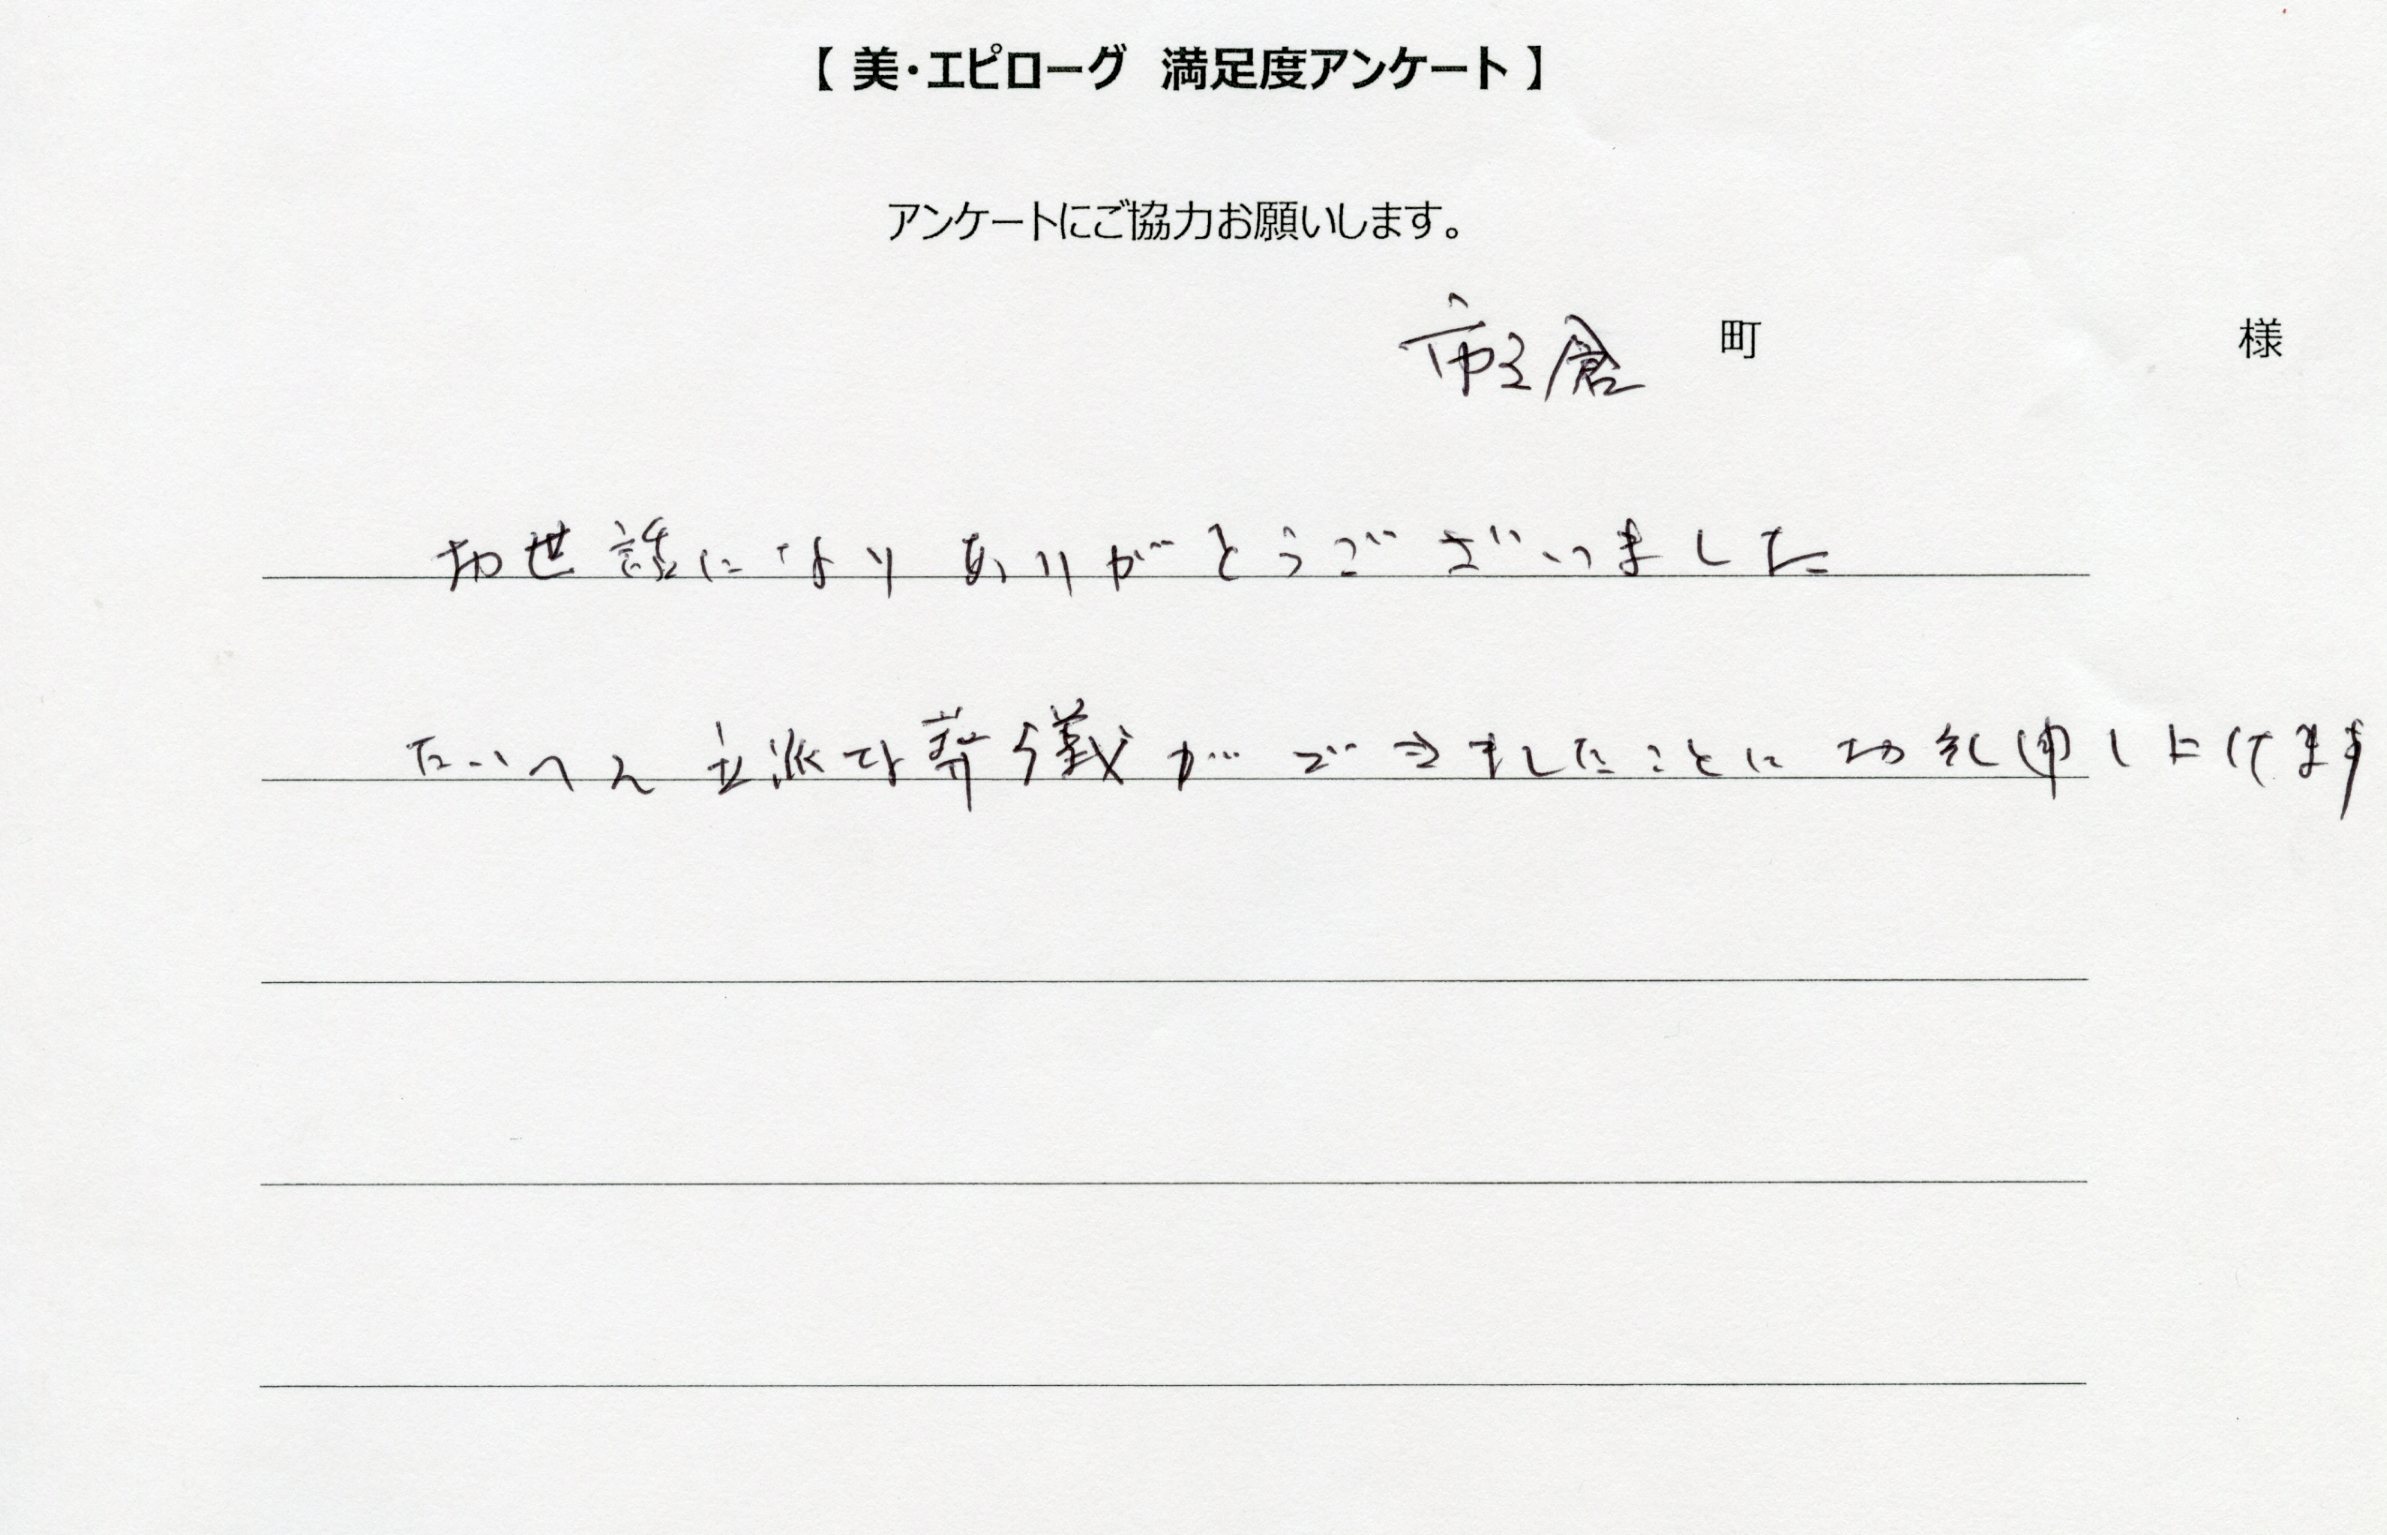 【 美・エピローグ 満足度アンケート 】
アンケートにご協力お願いします。
市之倉 町 様
お世話になりありがとうございました
たいへん立派な葬儀ができましたことにお礼申し上げます